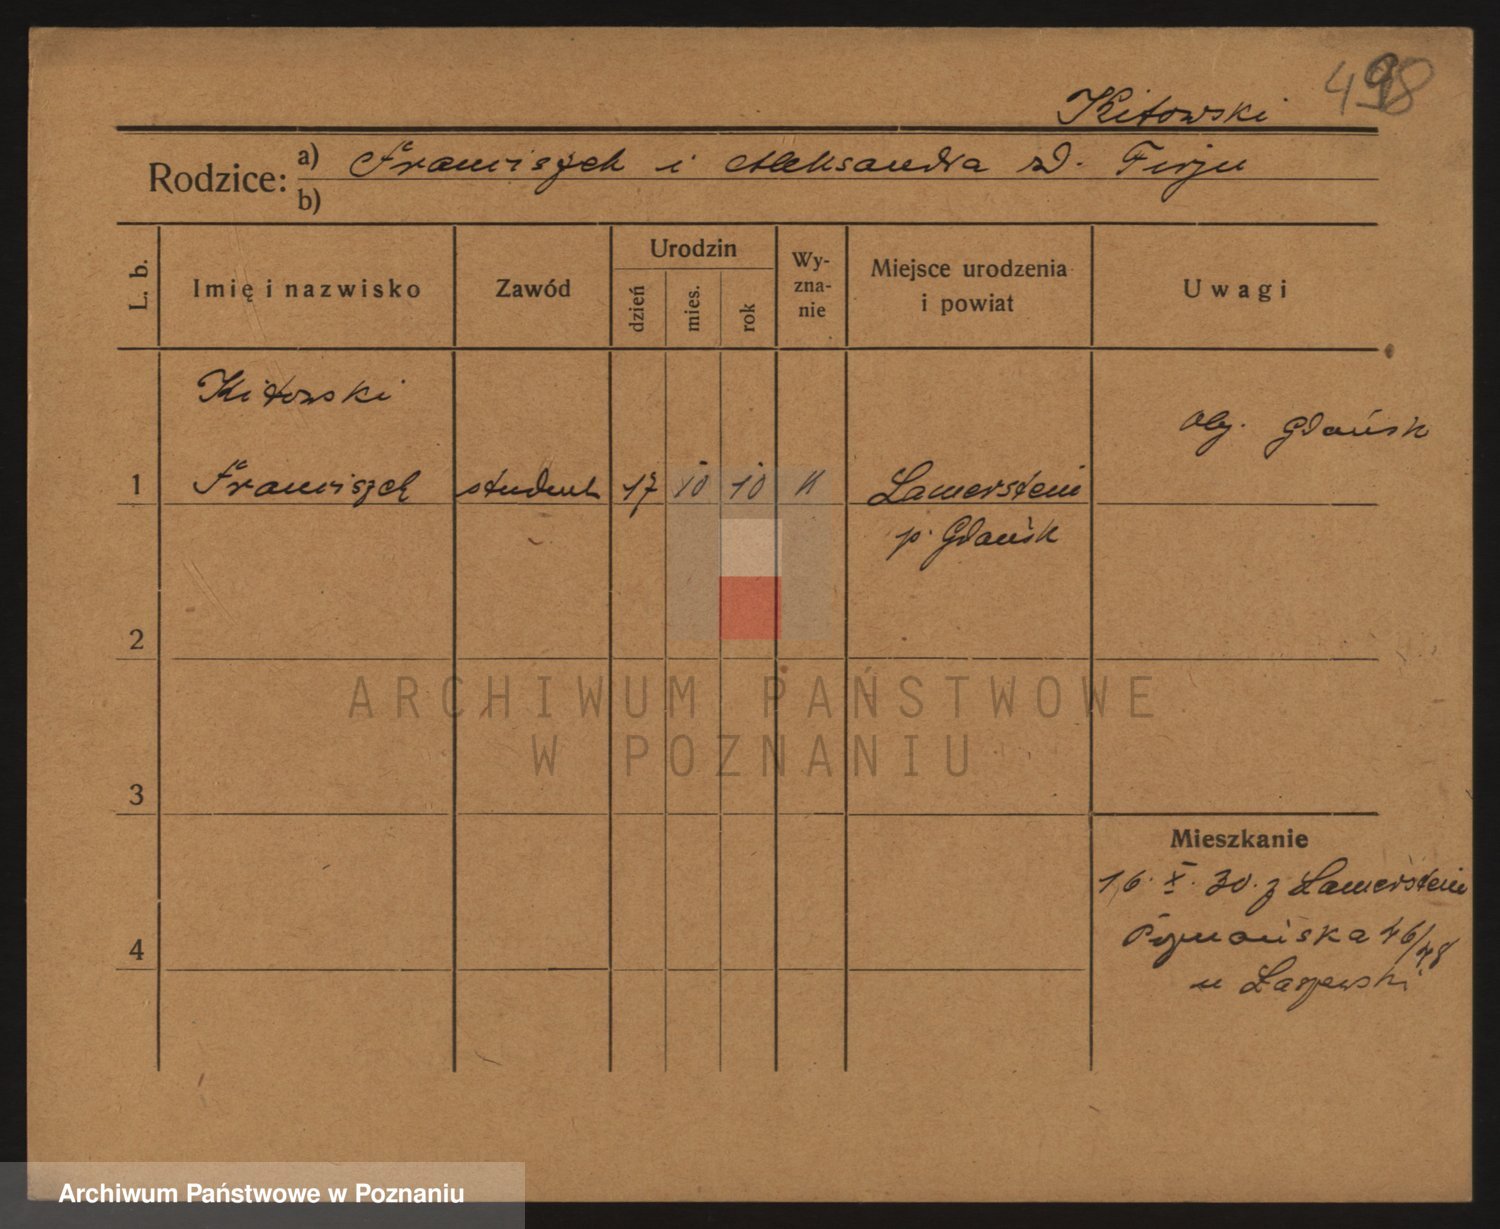 498
Kitowski
Rodzice: a) Franciszek i Aleksandra zd.
b)
L. b. Imię i nazwisko Zawód Urodzin dzień mies. rok Wyznanie Miejsce urodzenia i powiat Uwagi
Kitowski
oby. Gdańsk
1 Franciszek student 17 10 10 k Lamerstein
p. Gdańsk
2
ARCHIWUM PAŃSTWOWE
W POZNANIU
3
Mieszkanie
16. X. 30. z Lamerstein
46/48
4
u Łaszewski
Archiwum Państwowe w Poznaniu